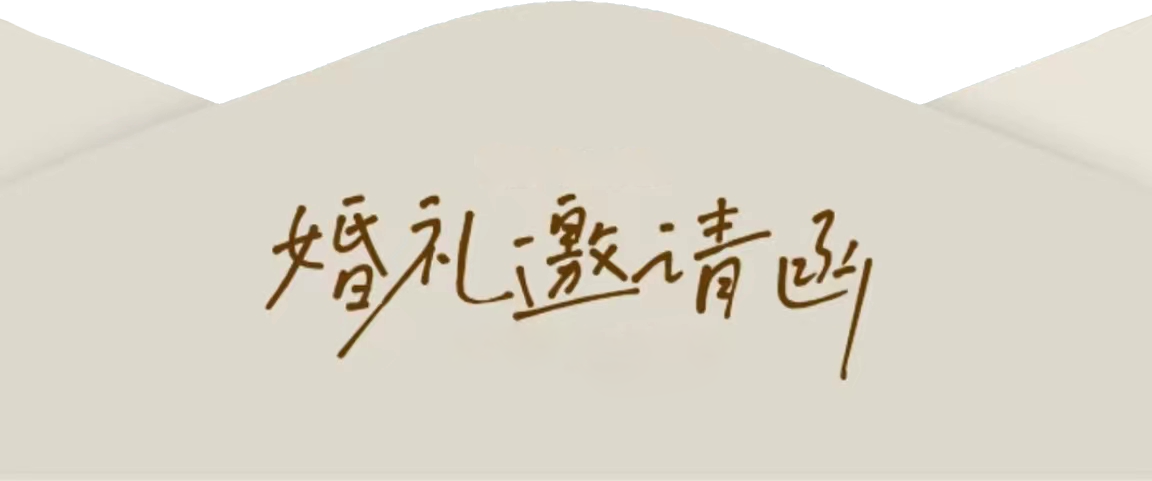 婚礼邀请函